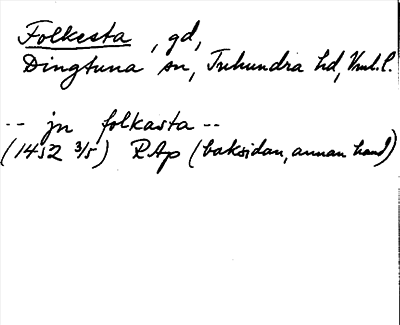 Folkesta, gd,
Dingtuna sn, Tuhundra hd, Vml.l.
-- jn folkasta --
(1452 3/5) RAp (baksidan, annan hand)